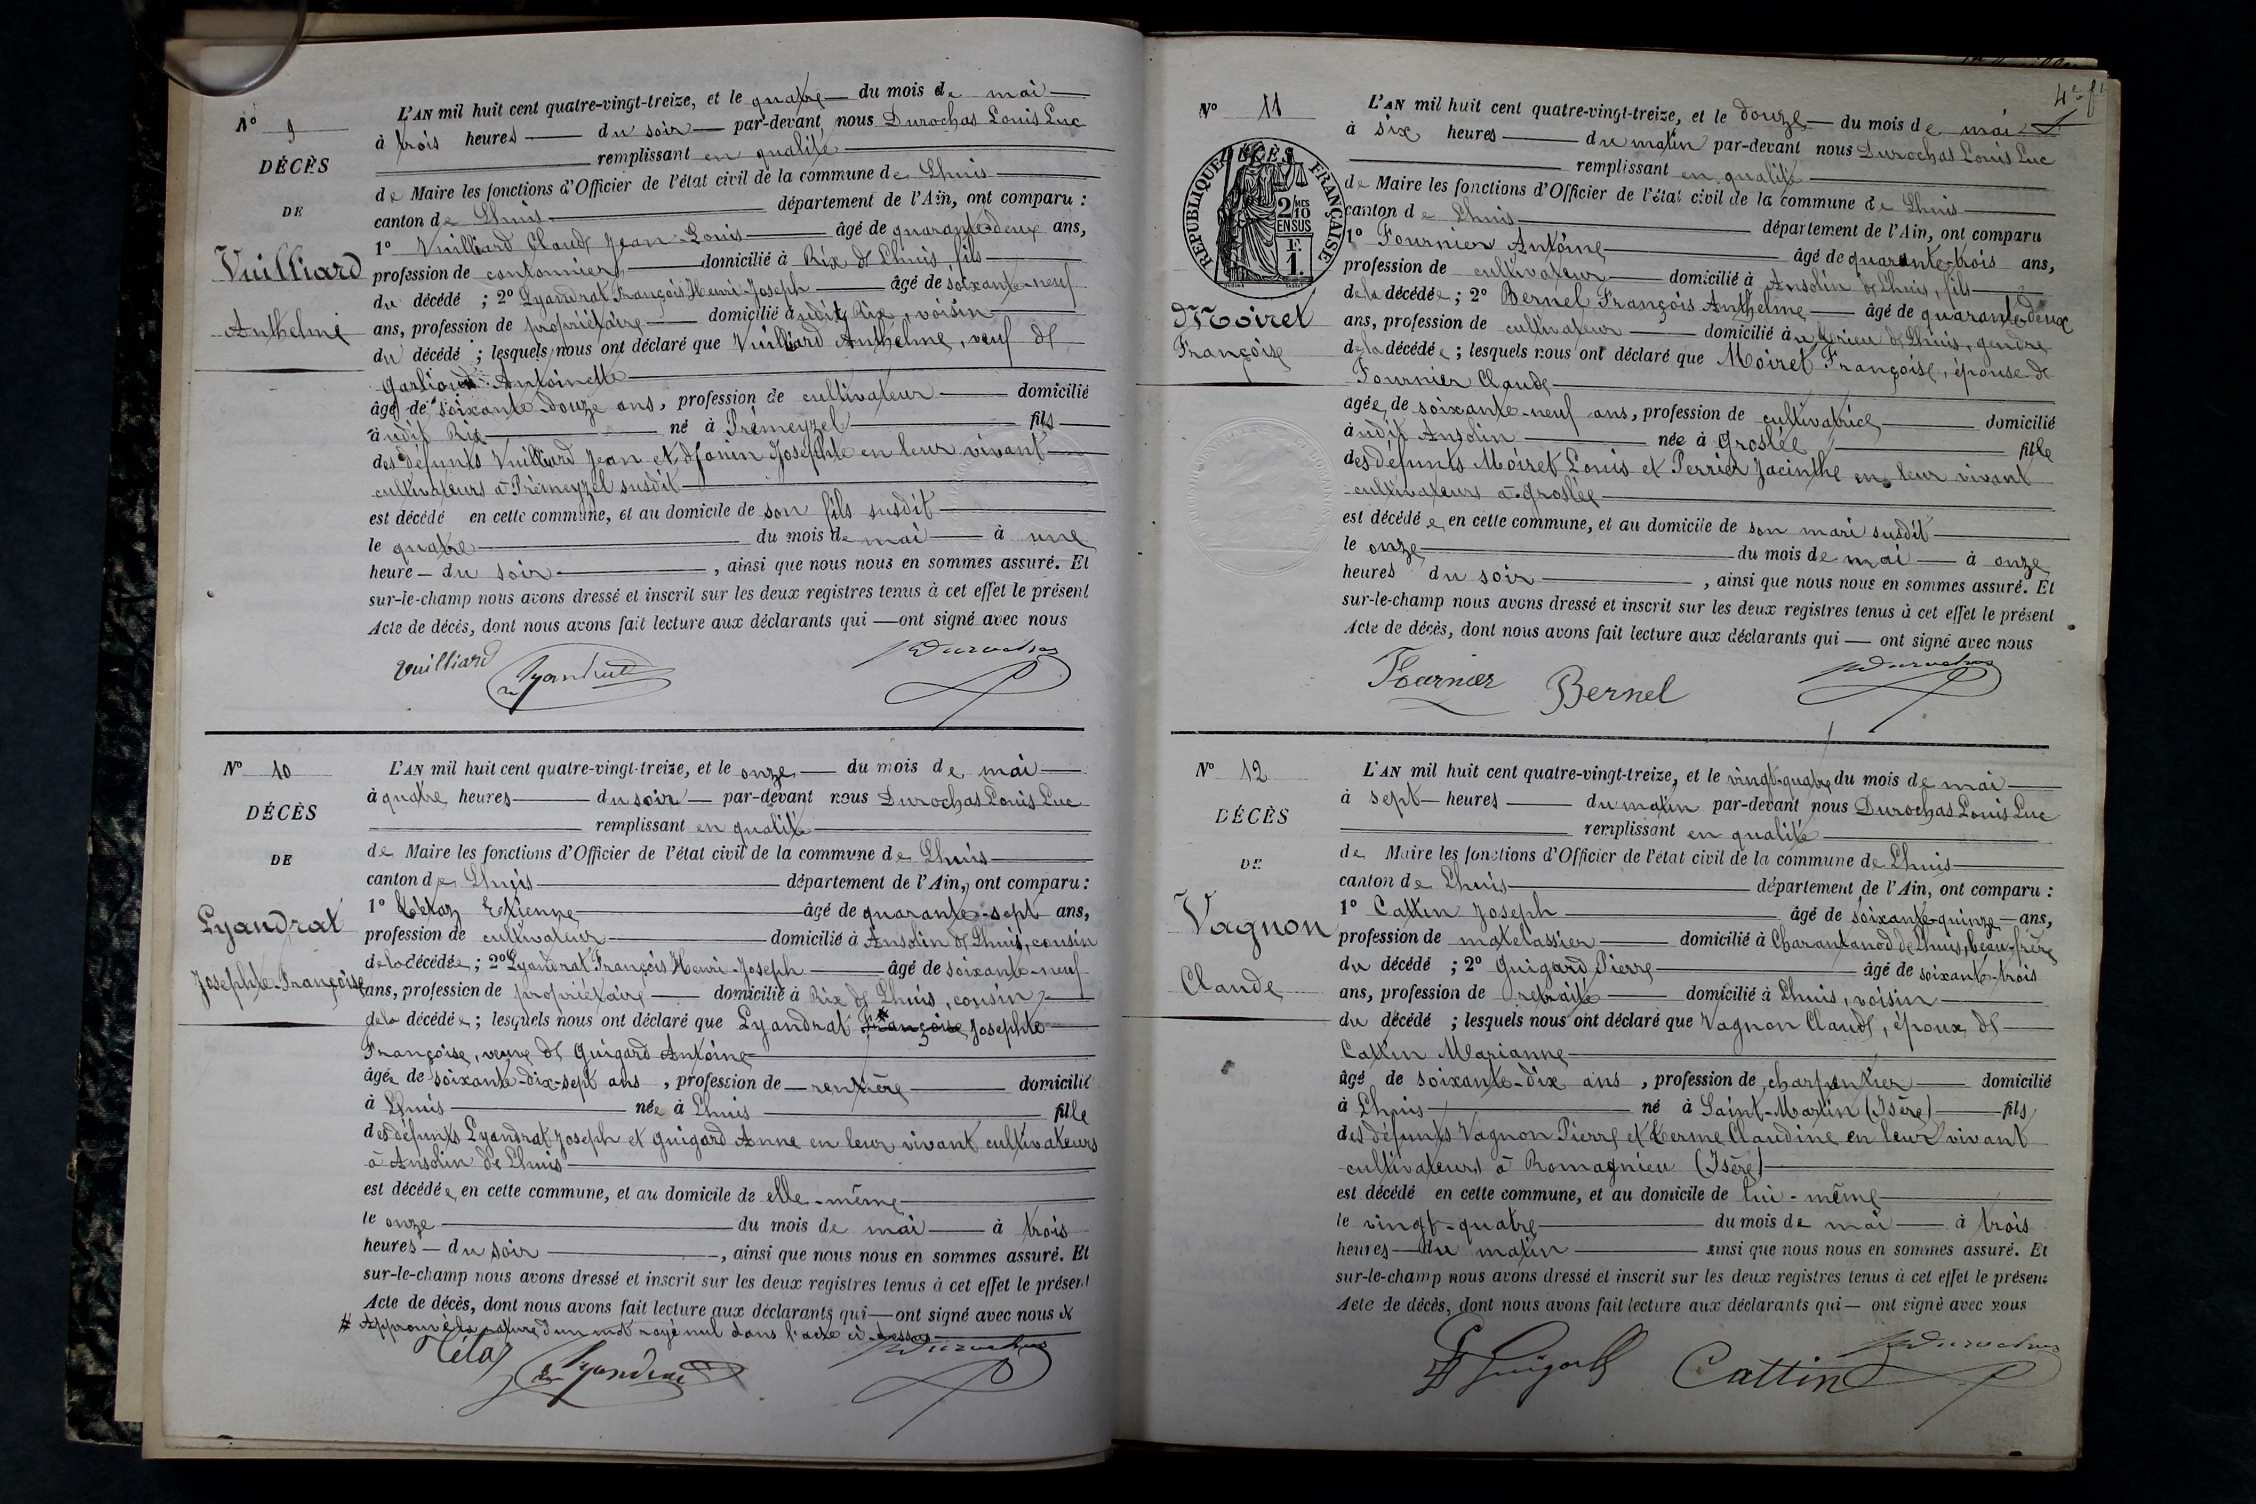 N° 9
DÉCÈS
DE
Vuilliard
Anthelme
L'AN mil huit cent quatre-vingt-treize, et le quatre du mois de mai
à trois heures du soir par-devant nous Durochas Louis Luc
remplissant en qualité
de Maire les fonctions d'Officier de l'état civil de la commune de Lhuis
canton de Lhuis département de l'Ain, ont comparu :
1° Vuilliard Claude Jean-Louis âgé de quarante-deux ans,
profession de cantonnier domicilié à Rix de Lhuis, fils
du décédé ; 2° Lyandrat François Henri-Joseph âgé de soixante-neuf
ans, profession de propriétaire domicilié audit Rix, voisin
du décédé ; lesquels nous ont déclaré que Vuilliard Anthelme, veuf de
Antoinette
âgé de soixante-douze ans, profession de cultivateur domicilié
audit Rix né à Prémeyzel fils
des défunts Vuilliard Jean et Josephte en leur vivant
cultivateurs à Prémeyzel susdit
est décédé en cette commune, et au domicile de son fils susdit
le quatre du mois de mai à une
heure du soir , ainsi que nous nous en sommes assuré. Et
sur-le-champ nous avons dressé et inscrit sur les deux registres tenus à cet effet le présent
Acte de décès, dont nous avons fait lecture aux déclarants qui ont signé avec nous
Vuilliard Lyandrat Durochas
N° 10
DÉCÈS
DE
Lyandrat
Josephte-Françoise
L'AN mil huit cent quatre-vingt-treize, et le onze du mois de mai
à quatre heures du soir par-devant nous Durochas Louis Luc
remplissant en qualité
de Maire les fonctions d'Officier de l'état civil de la commune de Lhuis
canton de Lhuis département de l'Ain, ont comparu :
1° Tétaz Etienne âgé de quarante-sept ans,
profession de cultivateur domicilié à Ansolin de Lhuis, cousin
de la décédée ; 2° Lyandrat François Henri-Joseph âgé de soixante-neuf
ans, profession de propriétaire domicilié à Rix de Lhuis, cousin
de la décédée ; lesquels nous ont déclaré que Lyandrat Françoise Josephte
Françoise, veuve de Guigard Antoine
âgée de soixante-dix-sept ans , profession de rentière domicilié
à Lhuis née à Lhuis fille
des défunts Lyandrat Joseph et Guigard Anne en leur vivant cultivateurs
à Ansolin de Lhuis
est décédée en cette commune, et au domicile de elle-même
le onze du mois de mai à trois
heures du soir , ainsi que nous nous en sommes assuré. Et
sur-le-champ nous avons dressé et inscrit sur les deux registres tenus à cet effet le présent
Acte de décès, dont nous avons fait lecture aux déclarants qui ont signé avec nous
# Approuvé la rature d'un mot rayé nul dans l'acte ci-dessus
Tétaz Lyandrat Durochas
4e ft
N° 11
DÉCÈS
RÉPUBLIQUE FRANÇAISE
2/10MES
EN SUS
1F.
1.
Moiret
Françoise
L'AN mil huit cent quatre-vingt-treize, et le douze du mois de mai
à six heures du matin par-devant nous Durochas Louis Luc
remplissant en qualité
de Maire les fonctions d'Officier de l'état civil de la commune de Lhuis
canton de Lhuis département de l'Ain, ont comparu
1° Fournier Antoine âgé de quarante-trois ans,
profession de cultivateur domicilié à Ansolin de Lhuis, fils
de la décédée ; 2° Bernel François Anthelme âgé de quarante-deux
ans, profession de cultivateur domicilié au de Lhuis, gendre
de la décédée ; lesquels nous ont déclaré que Moiret Françoise, épouse de
Fournier Claude
âgée de soixante-neuf ans, profession de cultivatrice domicilié
audit Ansolin née à Groslée fille
des défunts Moiret Louis et Perrier Jacinthe en leur vivant
cultivateurs à Groslée
est décédée en cette commune, et au domicile de son mari susdit
le onze du mois de mai à onze
heures du soir , ainsi que nous nous en sommes assuré. Et
sur-le-champ nous avons dressé et inscrit sur les deux registres tenus à cet effet le présent
Acte de décès, dont nous avons fait lecture aux déclarants qui ont signé avec nous
Fournier Bernel Durochas
N° 12
DÉCÈS
DE
Vagnon
Claude
L'AN mil huit cent quatre-vingt-treize, et le vingt-quatre du mois de mai
à sept heures du matin par-devant nous Durochas Louis Luc
remplissant en qualité
de Maire les fonctions d'Officier de l'état civil de la commune de Lhuis
canton de Lhuis département de l'Ain, ont comparu :
1° Cattin Joseph âgé de soixante-quinze ans,
profession de matelassier domicilié à Charantanod de Lhuis, beau-frère
du décédé ; 2° Guigard Pierre âgé de soixante-trois
ans, profession de retraité domicilié à Lhuis, voisin
du décédé ; lesquels nous ont déclaré que Vagnon Claude, époux de
Cattin Marianne
âgé de soixante-dix ans , profession de charpentier domicilié
à Lhuis né à Saint-Martin (Isère) fils
des défunts Vagnon Pierre et Terme Claudine en leur vivant
cultivateurs à Romagnieu (Isère)
est décédé en cette commune, et au domicile de lui-même
le vingt-quatre du mois de mai à trois
heures du matin ainsi que nous nous en sommes assuré. Et
sur-le-champ nous avons dressé et inscrit sur les deux registres tenus à cet effet le présent
Acte de décès, dont nous avons fait lecture aux déclarants qui ont signé avec nous
Guigard Cattin Durochas